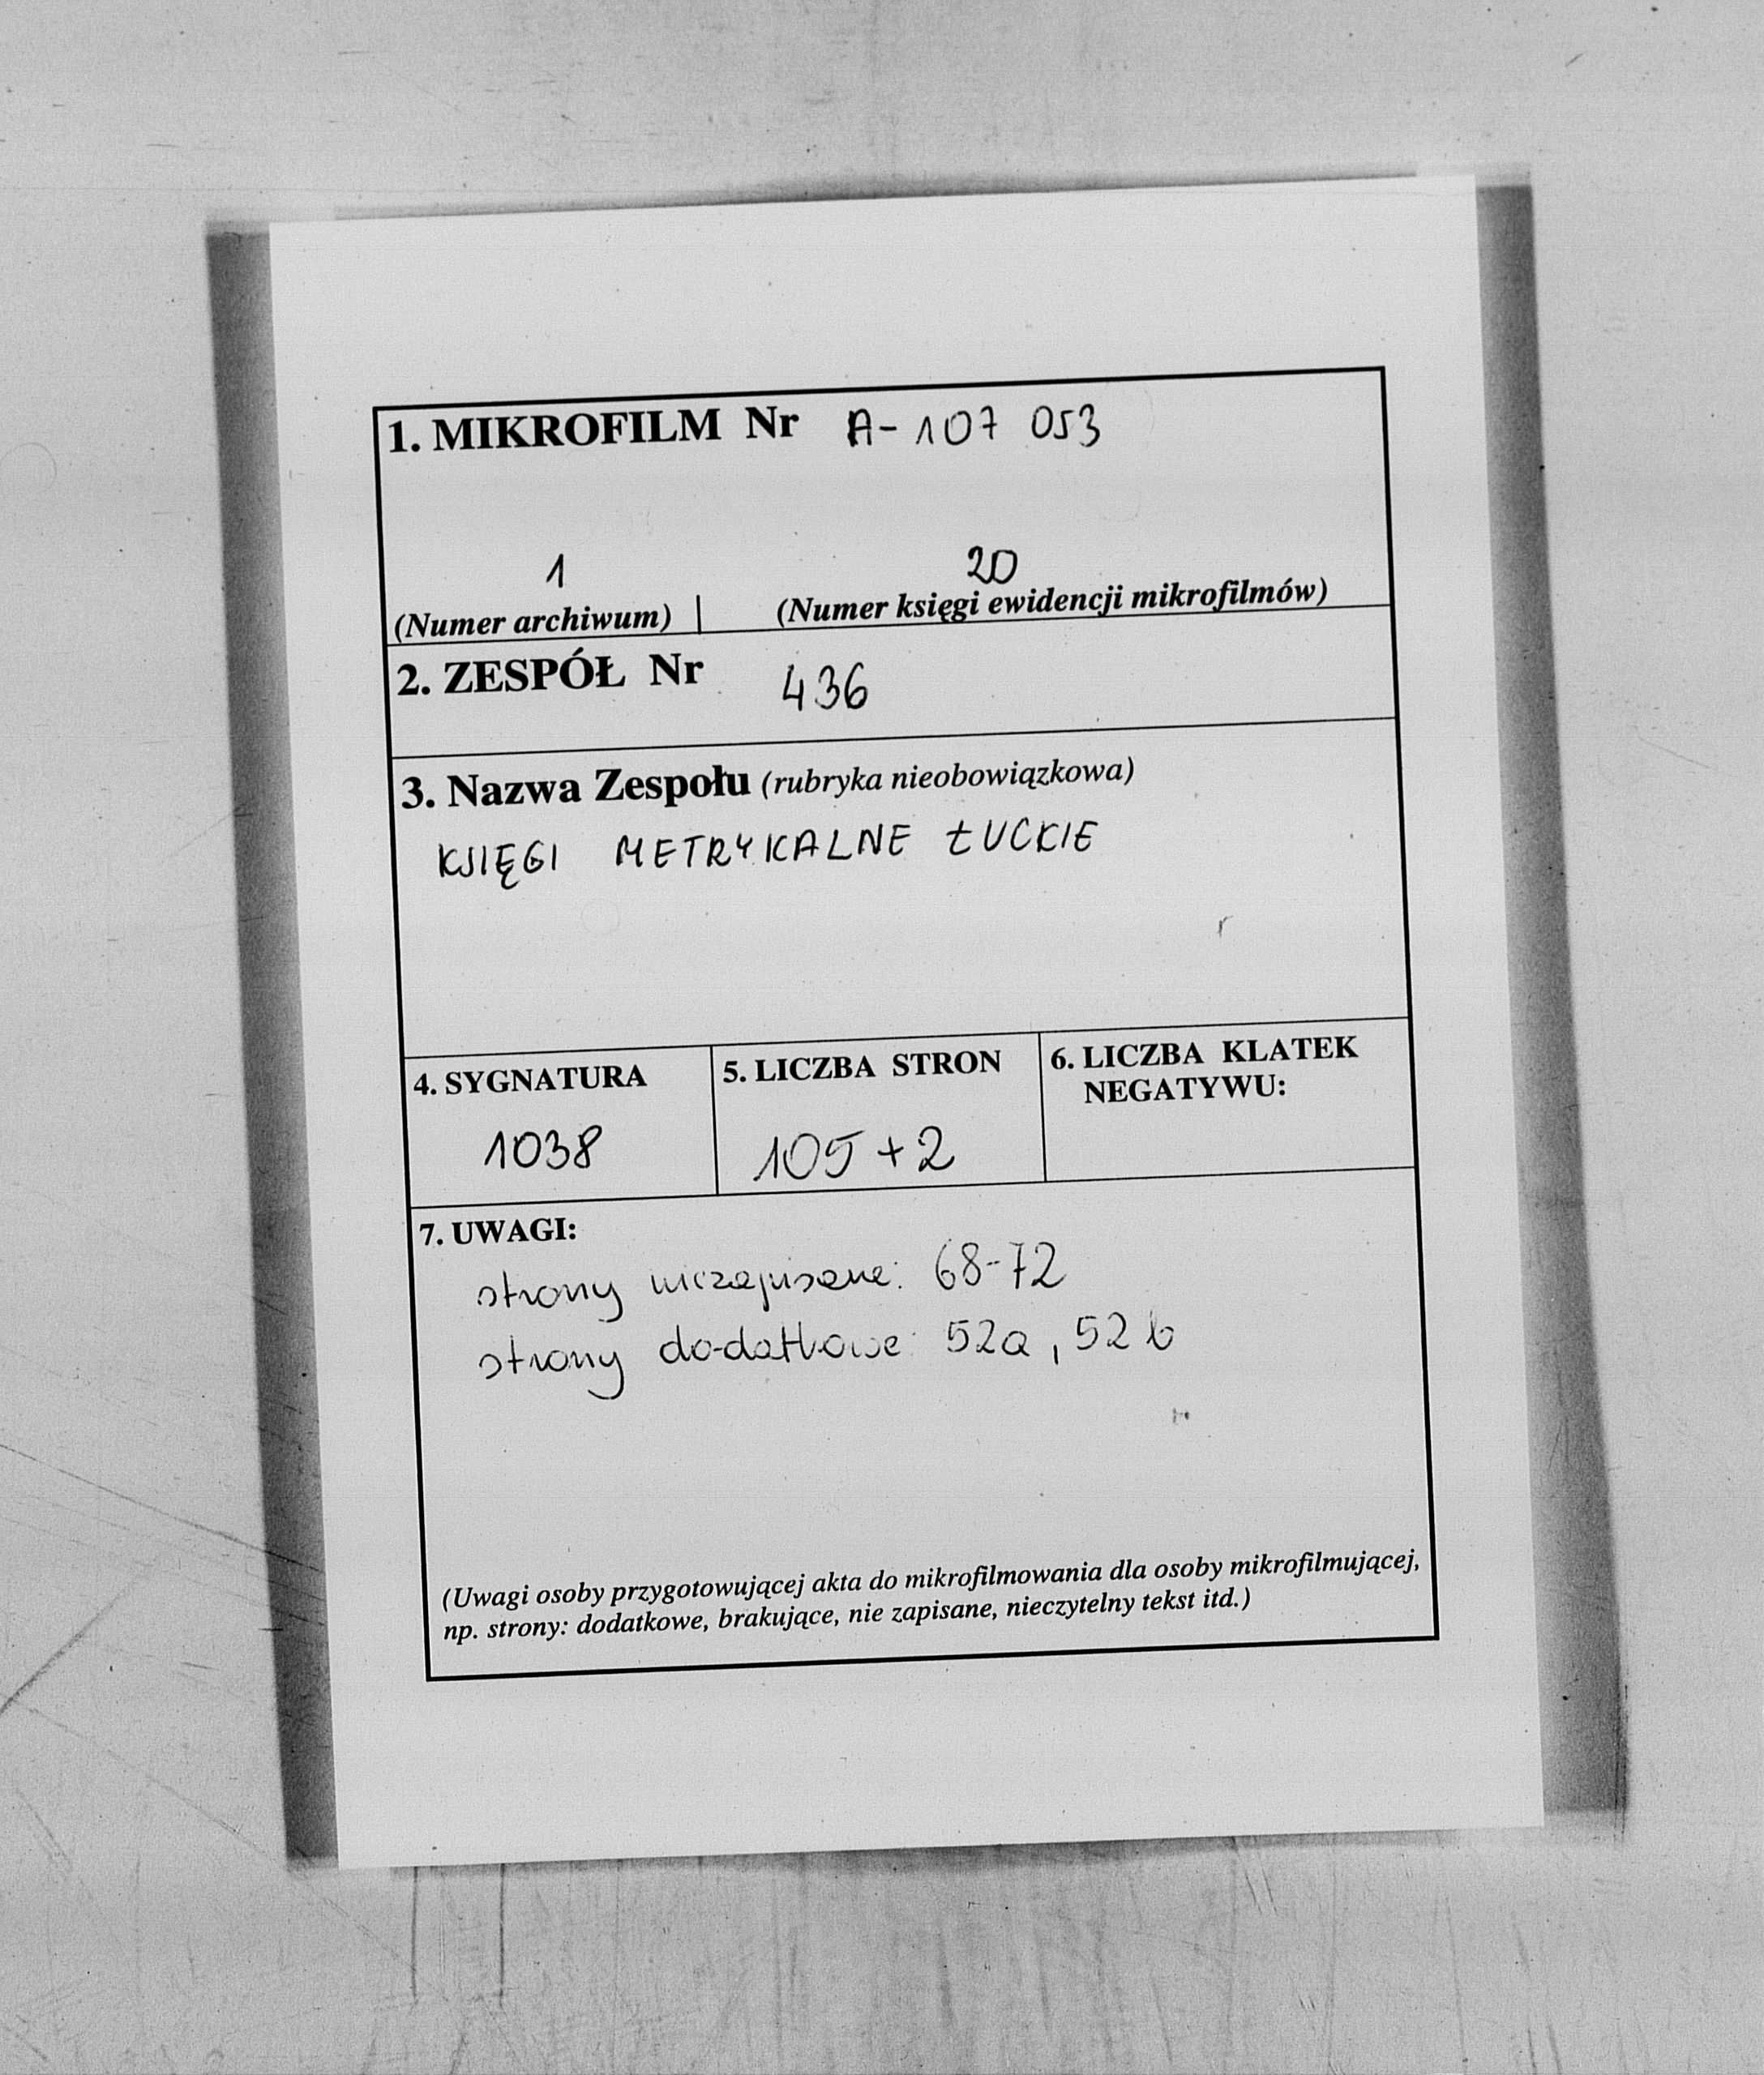 1. MIKROFILM Nr A-107 053
1 20
(Numer archiwum) | (Numer księgi ewidencji mikrofilmów)
2. ZESPÓŁ Nr 436
3. Nazwa Zespołu (rubryka nieobowiązkowa)
KSIĘGI METRYKALNE ŁUCKIE
4. SYGNATURA 5. LICZBA STRON 6. LICZBA KLATEK
NEGATYWU:
1038 105+2
7. UWAGI:
strony niezapisane: 68-72
strony dodatkowe: 52a, 52b
(Uwagi osoby przygotowującej akta do mikrofilmowania dla osoby mikrofilmującej,
np. strony: dodatkowe, brakujące, nie zapisane, nieczytelny tekst itd.)